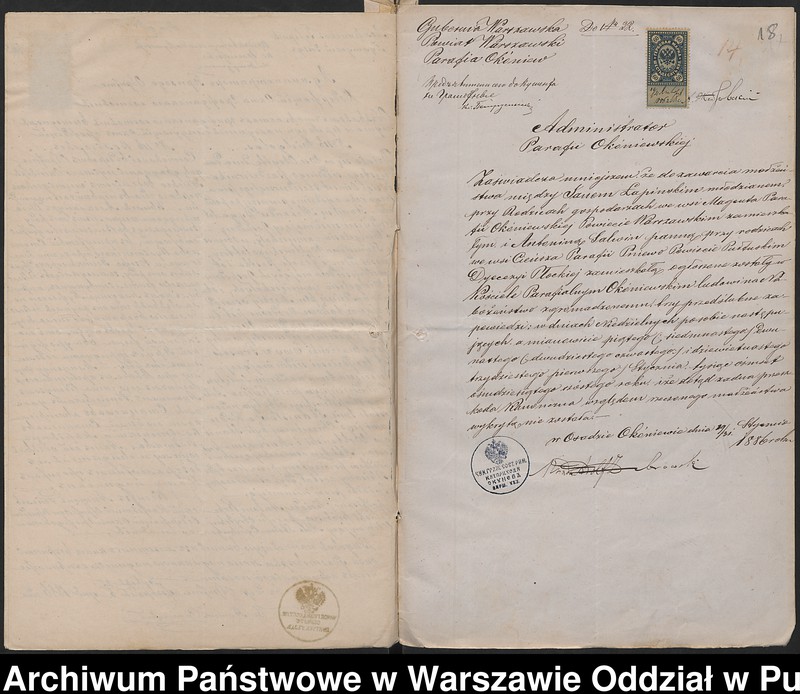 Gubernia Warszawska
Powiat Warszawski
Parafia Okóniew
Do № 22.
14
18
Administrator
Parafii Okóniewskiej
Zaświadcza niniejszem, że do zawarcia małżeń-
stwa między Janem Łapińskim młodzianem,
przy Rodzicach gospodarzach we wsi Magenta Para-
fii Okóniewskiej Powiecie Warszawskim zamieszka-
łym i Antoniną panną, przy rodzicach
we wsi Parafii Pniewo Powiecie Pułtuskim
Dyecezyi Płockiej zamieszkałą ogłoszone zostały w
Kościele Parafialnym Okóniewskim ludowi na Na-
bożeństwo zgromadzonemu, trzy przedślubne za-
powiedzi: w dniach Niedzielnych po sobie następu-
jących, a mianowicie piątego / siedmnastego / dwu-
nastego / dwudziestego czwartego / i dziewiętnastego
trzydziestego pierwszego / Stycznia, tysiąc ośmset
ośmdziesiątego szóstego roku, i że dotąd żadna przesz-
koda Kanonna względem rzeczonego małżeństwa
wykrytą nie została.
w Osadzie Okóniewie dnia 19/31 Stycznia
1886 roku
Archiwum Państwowe w Warszawie Oddział w Pu